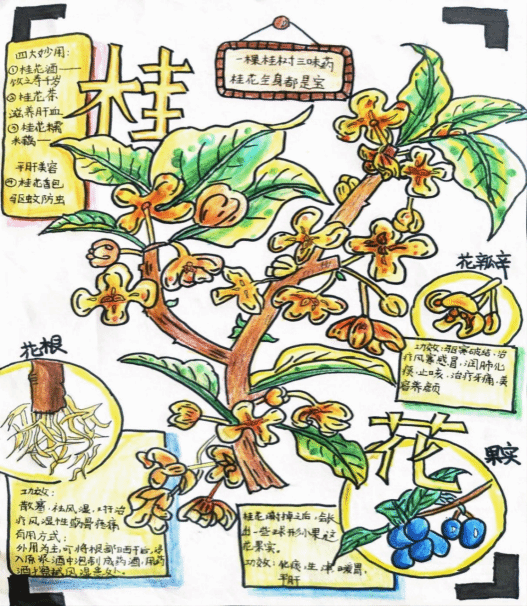 四大妙用:
①桂花酒——
饮之寿千岁
②桂花茶
滋养肝血
③桂花糯
米藕——
平肝美容
④桂花香包
驱蚊防虫
桂
一棵桂树三味药
桂花全身都是宝
花瓣
功效:驱寒破结,治
疗风寒感冒,润肺化
痰,止咳,治疗牙痛,美
容养颜
花根
功效:
散寒,祛风湿,对治
疗风湿性筋骨疼痛
有用方式:
外用为主,可将根部晒干后,
入原浆酒中泡制成药酒,用药
酒
风湿患处。
花
果实
桂花谢掉之后,会长
出一些球形小果
花果实。
功效:化痰,生津,暖胃,
平肝